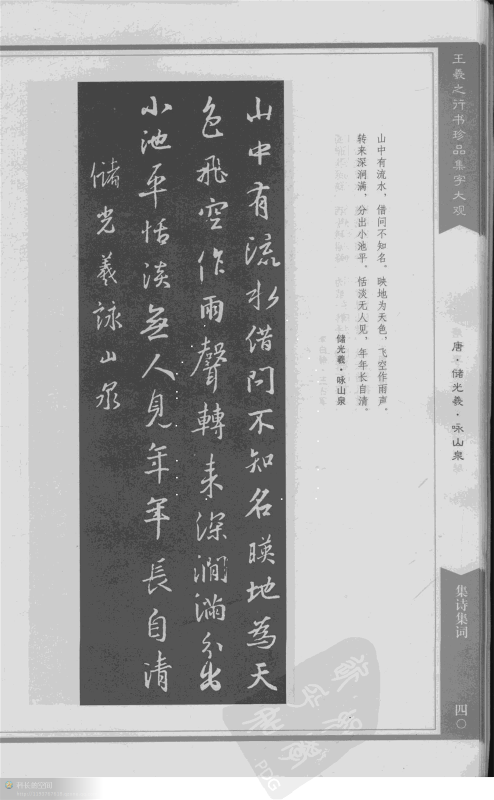 王羲之行书珍品集字大观
唐·储光羲·咏山泉
集诗集词
四〇
山中有流水，借问不知名。映地为天色，飞空作雨声。
转来深涧满，分出小池平。恬淡无人见，年年长自清。
储光羲·咏山泉
山中有流水借问不知名暎地為天
色飛空作雨聲轉来深澗滿分出
小池平恬淡無人見年年長自清
儲光羲詠山泉
PDG